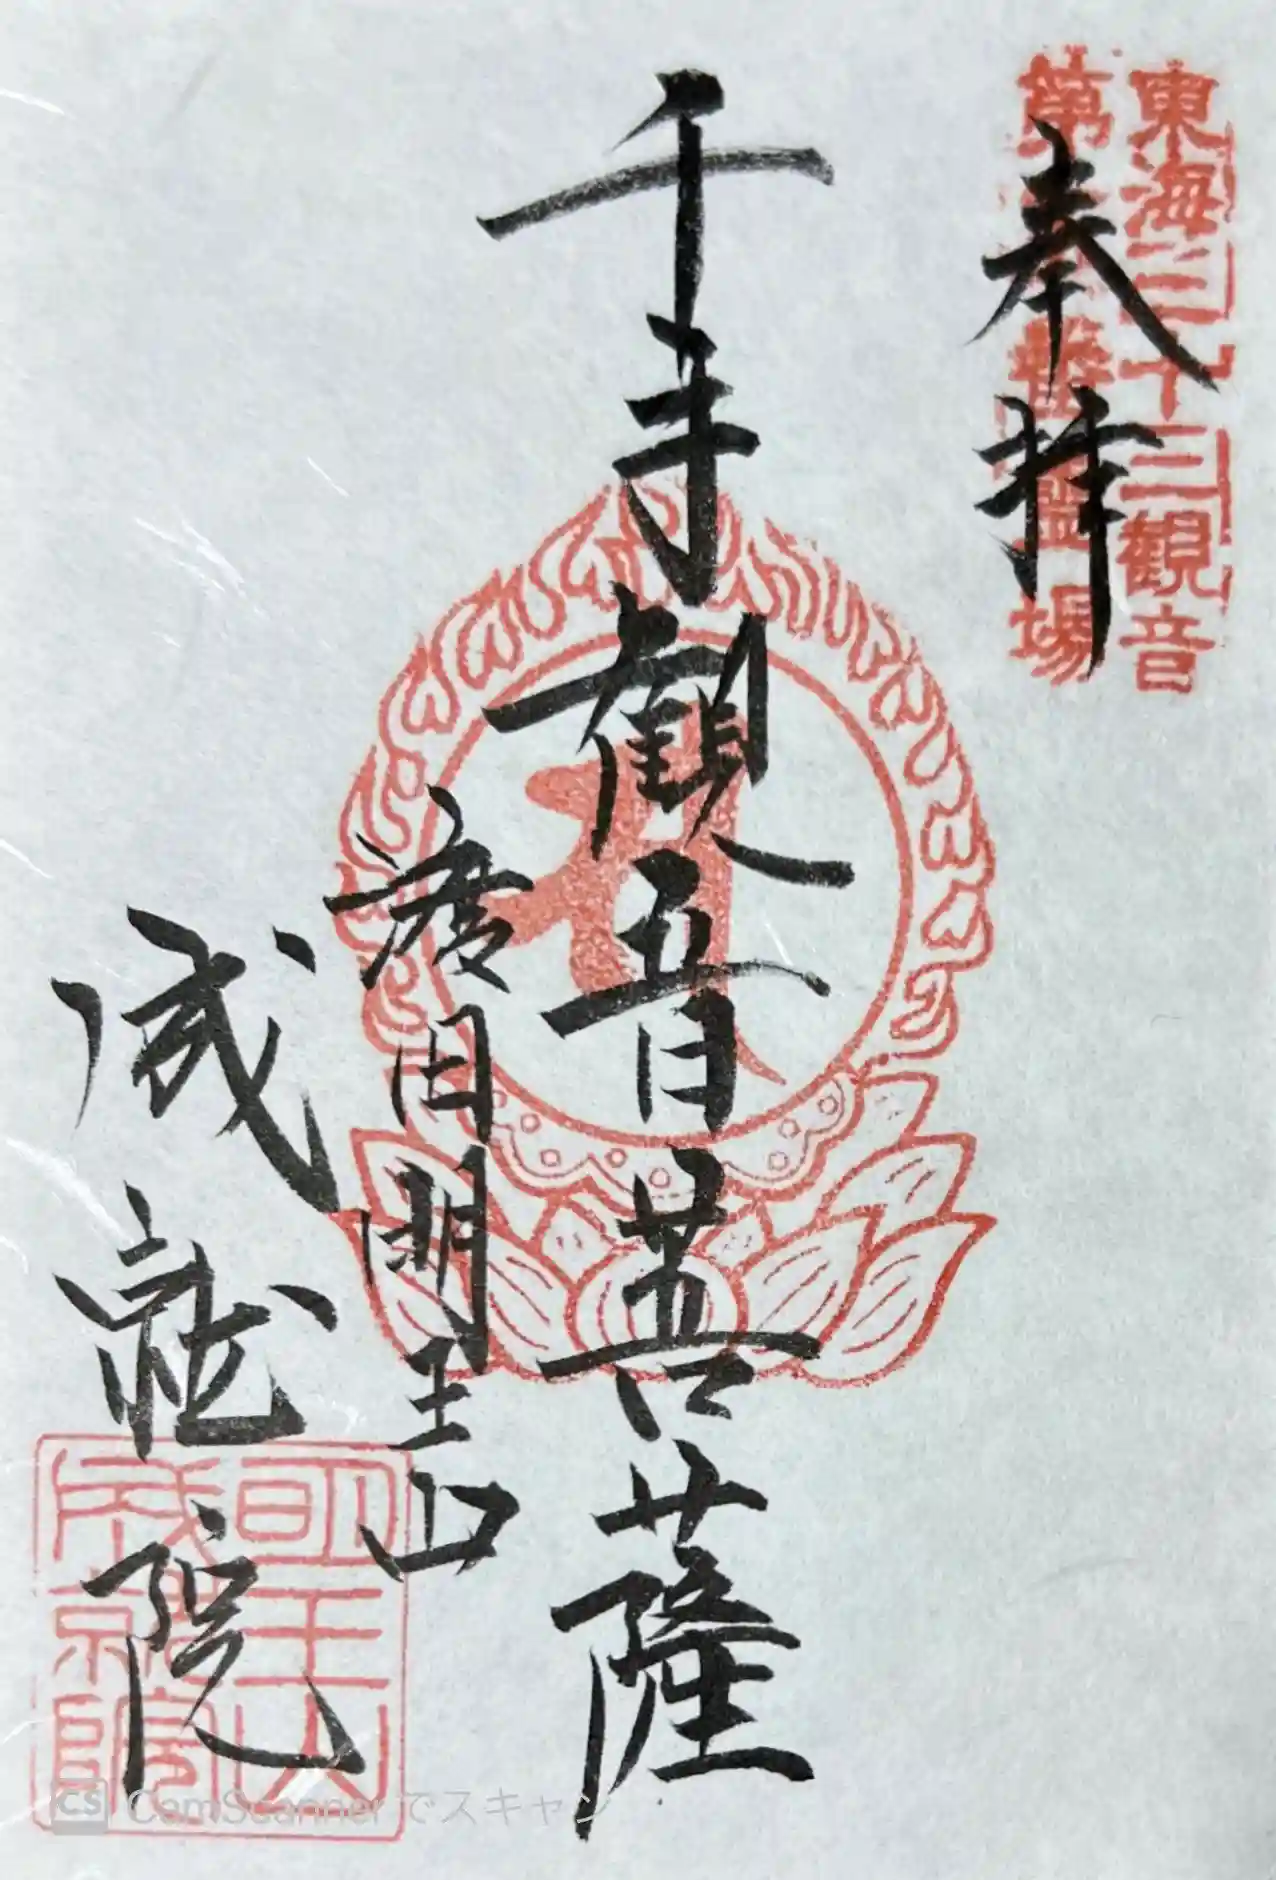 東海三十三観音
第番霊場
奉拝
千手觀音菩薩
明王山
成就院
明王山
成就院
CS CamScannerでスキャン